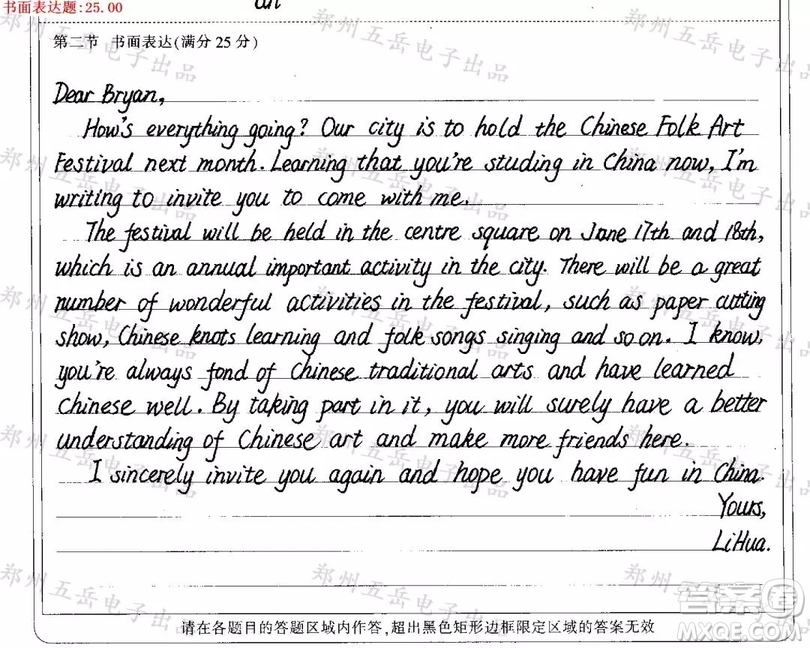 an
书面表达题:25.00
第二节 书面表达(满分25分)
Dear Bryan,
How's everything going? Our city is to hold the Chinese Folk Art
Festival next month. Learning that you're studing in China now, I'm
writing to invite you to come with me.
The festival will be held in the centre square on June 17th and 18th,
which is an annual important activity in the city. There will be a great
number of wonderful activities in the festival, such as paper cutting
show, Chinese knots learning and folk songs singing and so on. I know,
you're always fond of Chinese traditional arts and have learned
Chinese well. By taking part in it, you will surely have a better
understanding of Chinese art and make more friends here.
I sincerely invite you again and hope you have fun in China.
Yours,
LiHua.
请在各题目的答题区域内作答,超出黑色矩形边框限定区域的答案无效
郑州五岳电子出品
答案圈
MXQE.COM